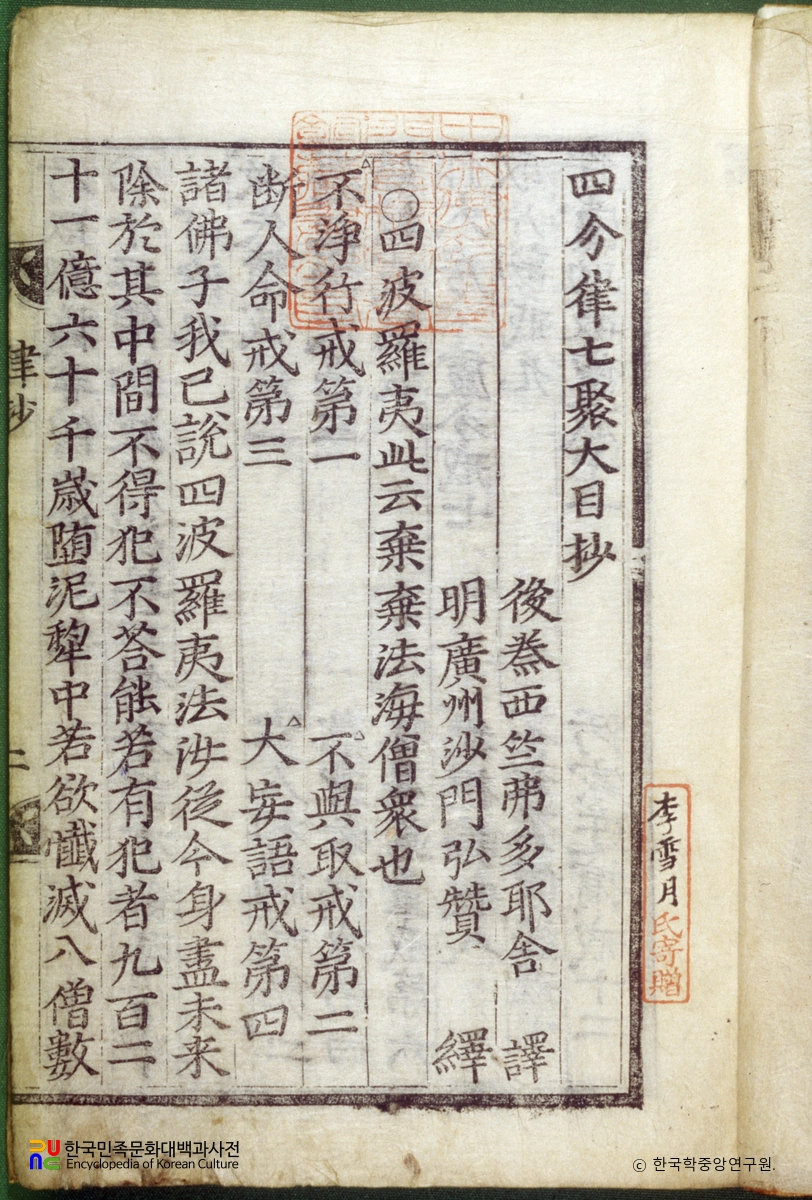 四分律七聚大目抄
後秊西竺弗多耶舍 譯
明廣州沙門弘贊 繹
○四波羅夷此云棄棄法海僧衆也
不淨行戒第一 不與取戒第二
断人命戒第三 大妄語戒第四
諸佛子我已說四波羅夷法汝從今身盡未来
除於其中間不得犯不荅能若有犯者九百二
十一億六十千歳堕泥犂中若欲懺滅八僧數
律抄
二
李雪月氏寄贈
한국민족문화대백과사전
Encyclopedia of Korean Culture
© 한국학중앙연구원.